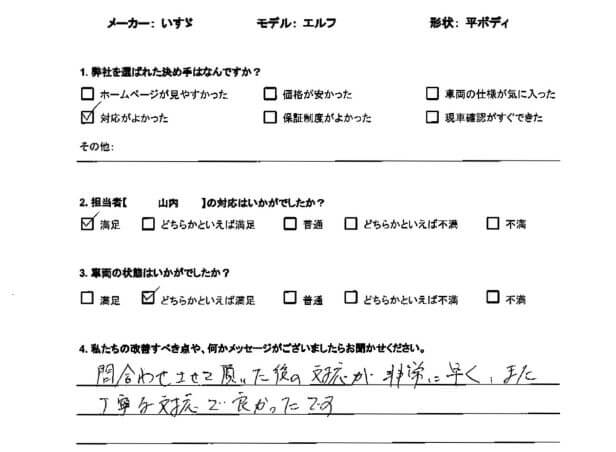 メーカー: いすゞ モデル: エルフ 形状: 平ボディ
1. 弊社を選ばれた決め手はなんですか?
☐ ホームページが見やすかった ☐ 価格が安かった ☐ 車両の仕様が気に入った
☑ 対応がよかった ☐ 保証制度がよかった ☐ 現車確認がすぐできた
その他:
2. 担当者【 山内 】の対応はいかがでしたか?
☑ 満足 ☐ どちらかといえば満足 ☐ 普通 ☐ どちらかといえば不満 ☐ 不満
3. 車両の状態はいかがでしたか?
☐ 満足 ☑ どちらかといえば満足 ☐ 普通 ☐ どちらかといえば不満 ☐ 不満
4. 私たちの改善すべき点や、何かメッセージがございましたらお聞かせください。
問合わせさせて頂いた後の対応が非常に早く、また
丁寧な対応で良かったです